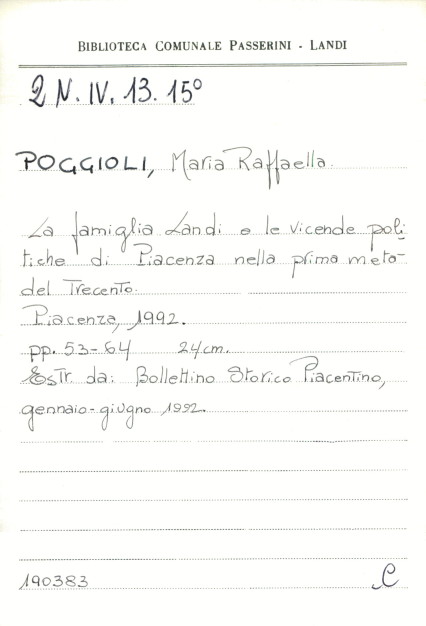 BIBLIOTECA COMUNALE PASSERINI - LANDI
2 N. IV. 13. 15°
POGGIOLI, Maria Raffaella.
La famiglia Landi e le vicende poli
tiche di Piacenza nella prima metà
del Trecento.
Piacenza, 1992.
pp. 53-64 24cm.
Estr. da: Bollettino Storico Piacentino,
gennaio-giugno 1992.
190383 C